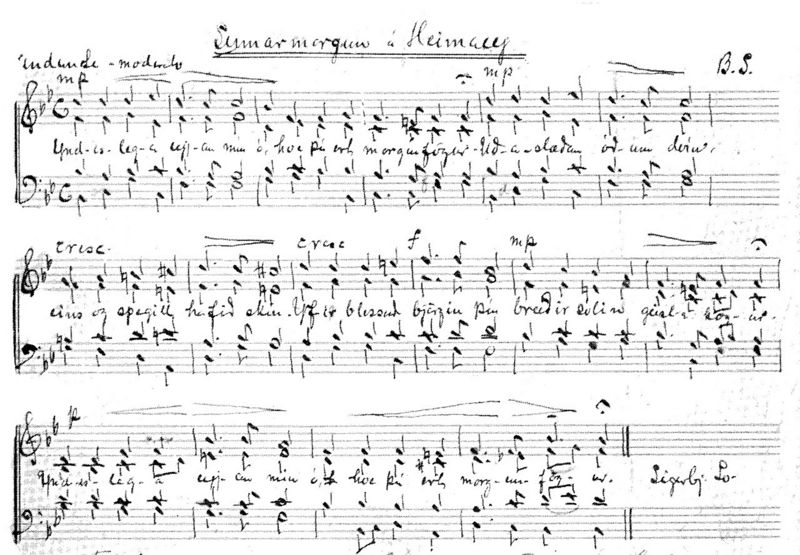 Sumarmorgun á Heimaey
Andante - moderato
mp mp B.S.
Ynd-is-leg-a eyj-an mín ó, hve þú ert morgunfögur Úð-a-slæðan óð-um dvín,
cresc. cresc f mp
eins og spegill hafið skín. Yfir blessuð björgin þín breiðir sólin geisl-a kög-ur.
p
Ynd-is-leg-a eyj-an mín ó, hve þú ert morg-un-fög-ur. Sigurbj. Sv-